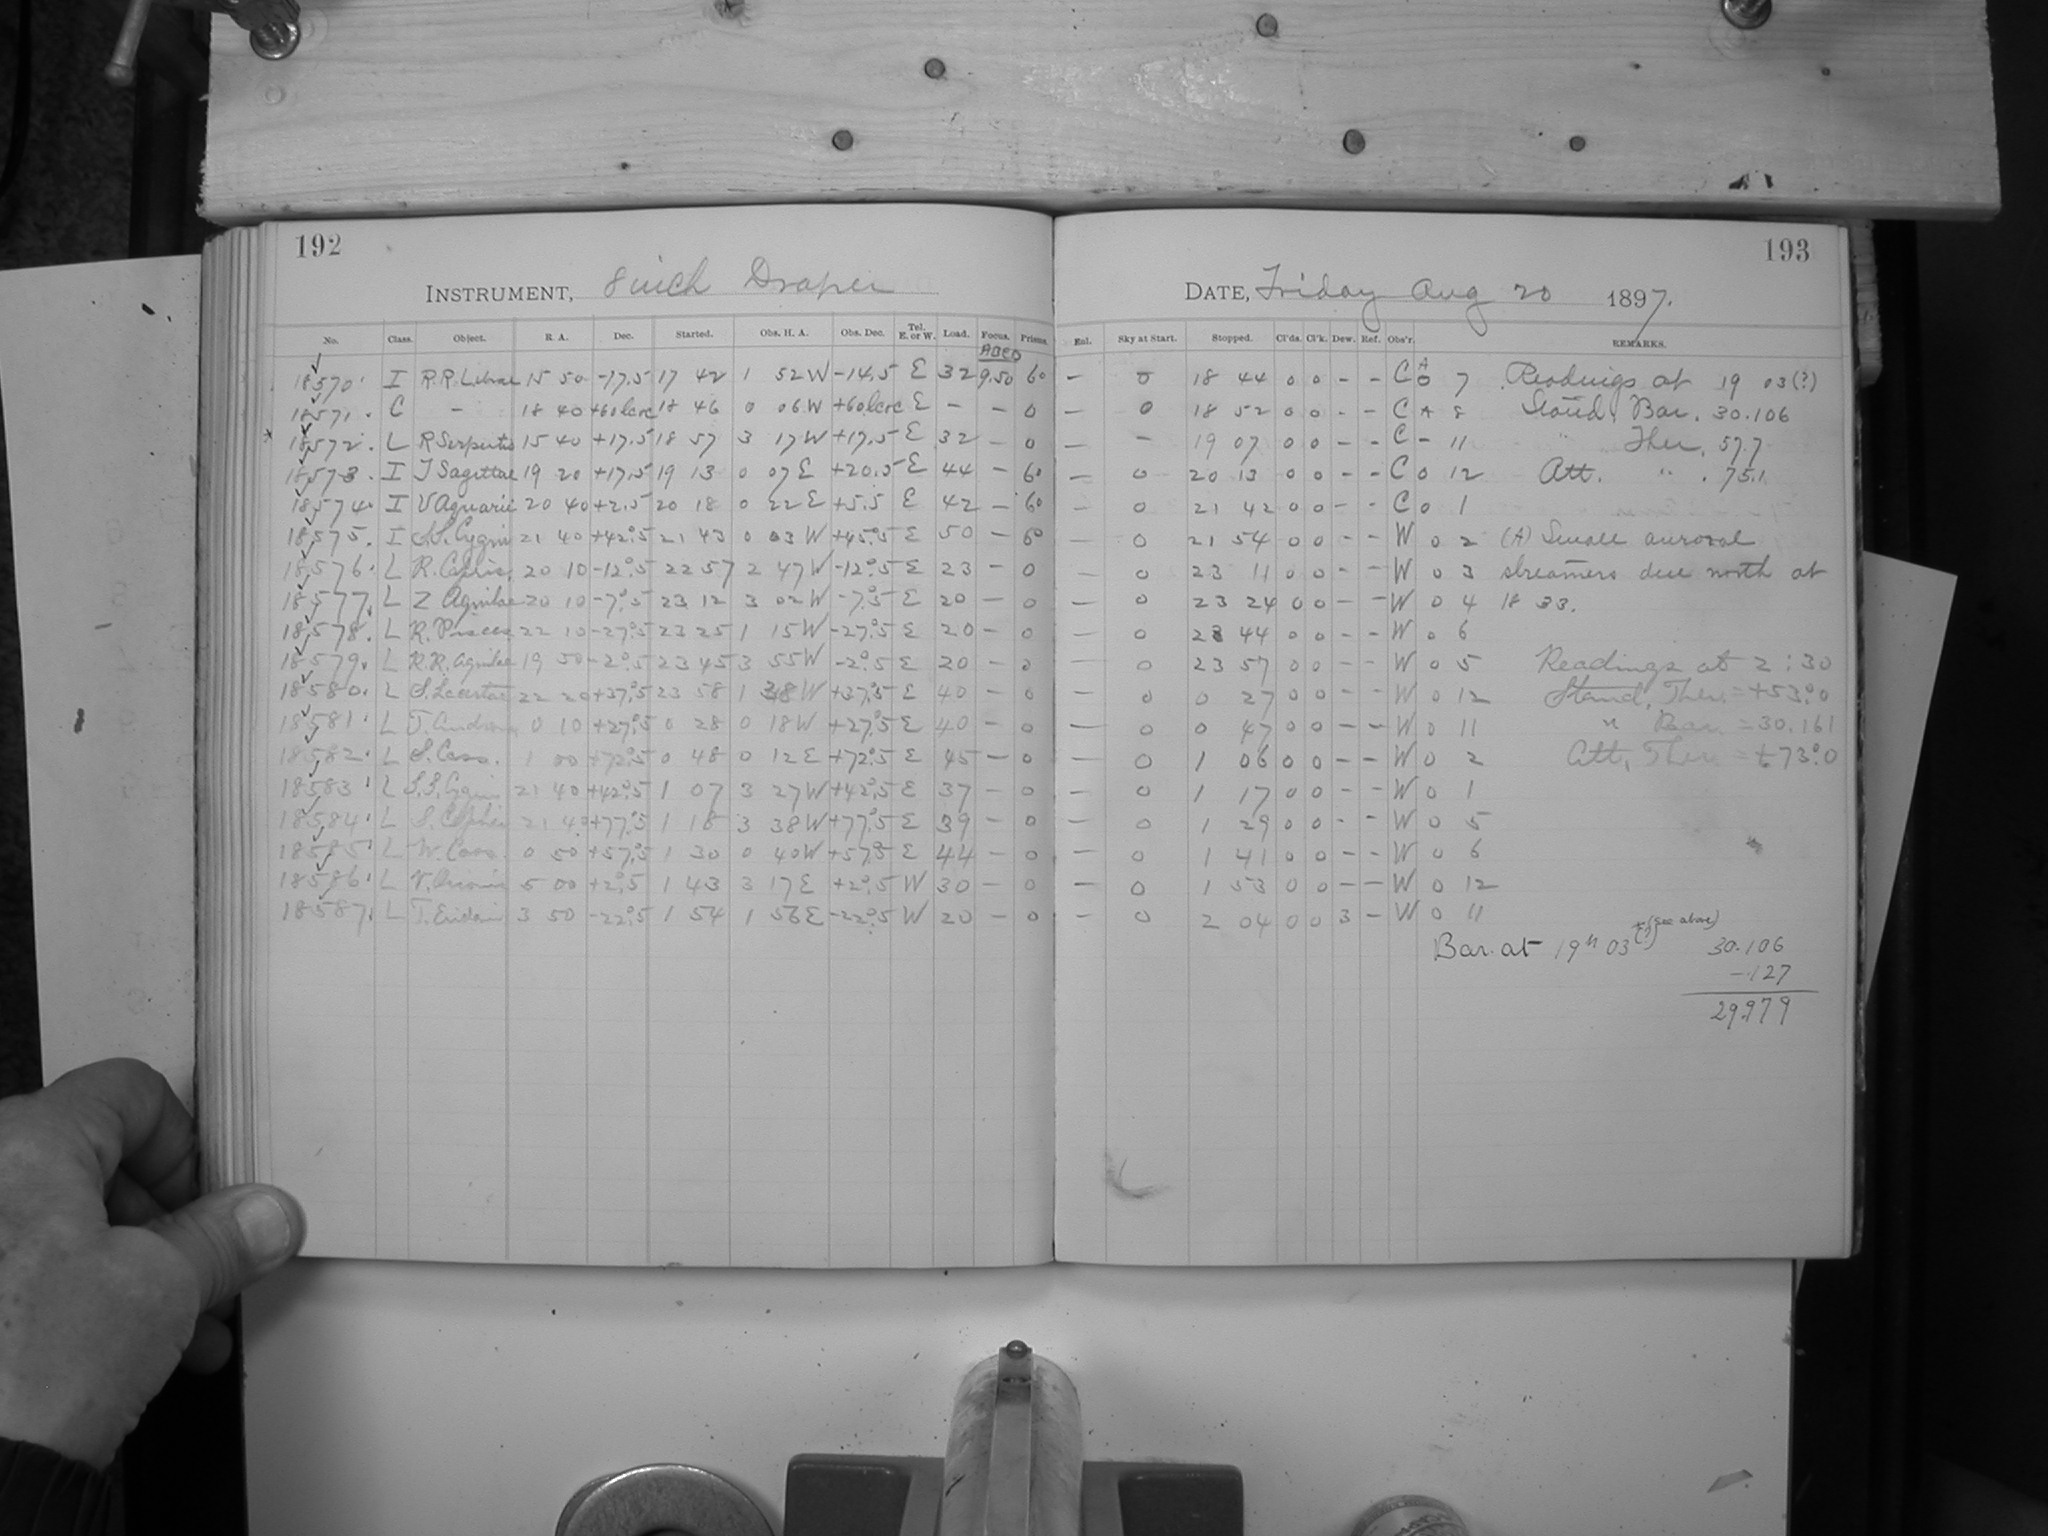 192
INSTRUMENT, 8 inch Draper
No. Class. Object. R. A. Dec. Started. Obs. H. A. Obs. Dec. Tel. E. or W. Load. Focus. Prisms.
ABCD
18570 I R.R. Librae 15 50 -17.5 17 42 1 52 W -14.5 E 32 9.50 60
18571. C - 18 40 +60 18 46 0 06 W +60 E - - 0
* 18572. L R Serpentis 15 40 +17.5 18 57 3 17 W +17.5 E 32 - 0
18573. I T Sagittae 19 20 +17.5 19 13 0 07 E +20.5 E 44 - 60
18574. I V Aquarii 20 40 +2.5 20 18 0 22 E +5.5 E 42 - 60
18575. I S.S. Cygni 21 40 +42°.5 21 43 0 03 W +45°.5 E 50 - 60
18576. L R. Capric. 20 10 -12°.5 22 57 2 47 W -12°.5 E 23 - 0
18577. L Z Aquilae 20 10 -7°.5 23 12 3 02 W -7°.5 E 20 - 0
18578. L R. Pisces 22 10 -27°.5 23 25 1 15 W -27°.5 E 20 - 0
18579. L R.R. Aquilae 19 50 -2°.5 23 45 3 55 W -2°.5 E 20 - 0
18580. L S. Lacertae 22 20 +37°.5 23 58 1 38 W +37°.5 E 40 - 0
18581. L T. Androm 0 10 +27°.5 0 28 0 18 W +27°.5 E 40 - 0
18582. L S. Cass. 1 00 +72°.5 0 48 0 12 E +72°.5 E 45 - 0
18583. L S.S. Cygni 21 40 +42°.5 1 07 3 27 W +42°.5 E 37 - 0
18584. L S. Cephei 21 40 +77°.5 1 18 3 38 W +77°.5 E 39 - 0
18585. L W. Cass. 0 50 +57°.5 1 30 0 40 W +57°.5 E 44 - 0
18586. L V. Orionis 5 00 +2°.5 1 43 3 17 E +2°.5 W 30 - 0
18587. L T. Eridani 3 50 -22°.5 1 54 1 56 E -22°.5 W 20 - 0
193
DATE, Friday Aug 20 1897.
Exl. Sky at Start. Stopped. Cl'ds. Cl'k. Dew. Ref. Obs'r. REMARKS.
- 0 18 44 0 0 - - C A 0 7 Readings at 19 03 (?)
- 0 18 52 0 0 - - C A 8 Stand. Bar. 30.106
- - 19 07 0 0 - - C - 11 " Ther. 57.7
- 0 20 13 0 0 - - C 0 12 Att. " . 75.1
- 0 21 42 0 0 - - C 0 1
- 0 21 54 0 0 - - W 0 2 (A) Small auroral
- 0 23 11 0 0 - - W 0 3 streamers due north at
- 0 23 24 0 0 - - W 0 4 18 33.
- 0 23 44 0 0 - - W 0 6
- 0 23 57 0 0 - - W 0 5 Readings at 2:30
- 0 0 27 0 0 - - W 0 12 Stand. Ther. = +53°.0
- 0 0 47 0 0 - - W 0 11 " Bar. = 30.161
- 0 1 06 0 0 - - W 0 2 Att. Ther = +73°.0
- 0 1 17 0 0 - - W 0 1
- 0 1 29 0 0 - - W 0 5
- 0 1 41 0 0 - - W 0 6
- 0 1 53 0 0 - - W 0 12
- 0 2 04 0 0 3 - W 0 11
Bar. at 19h 03 (?) * (see above) 30.106
-.127
29.979